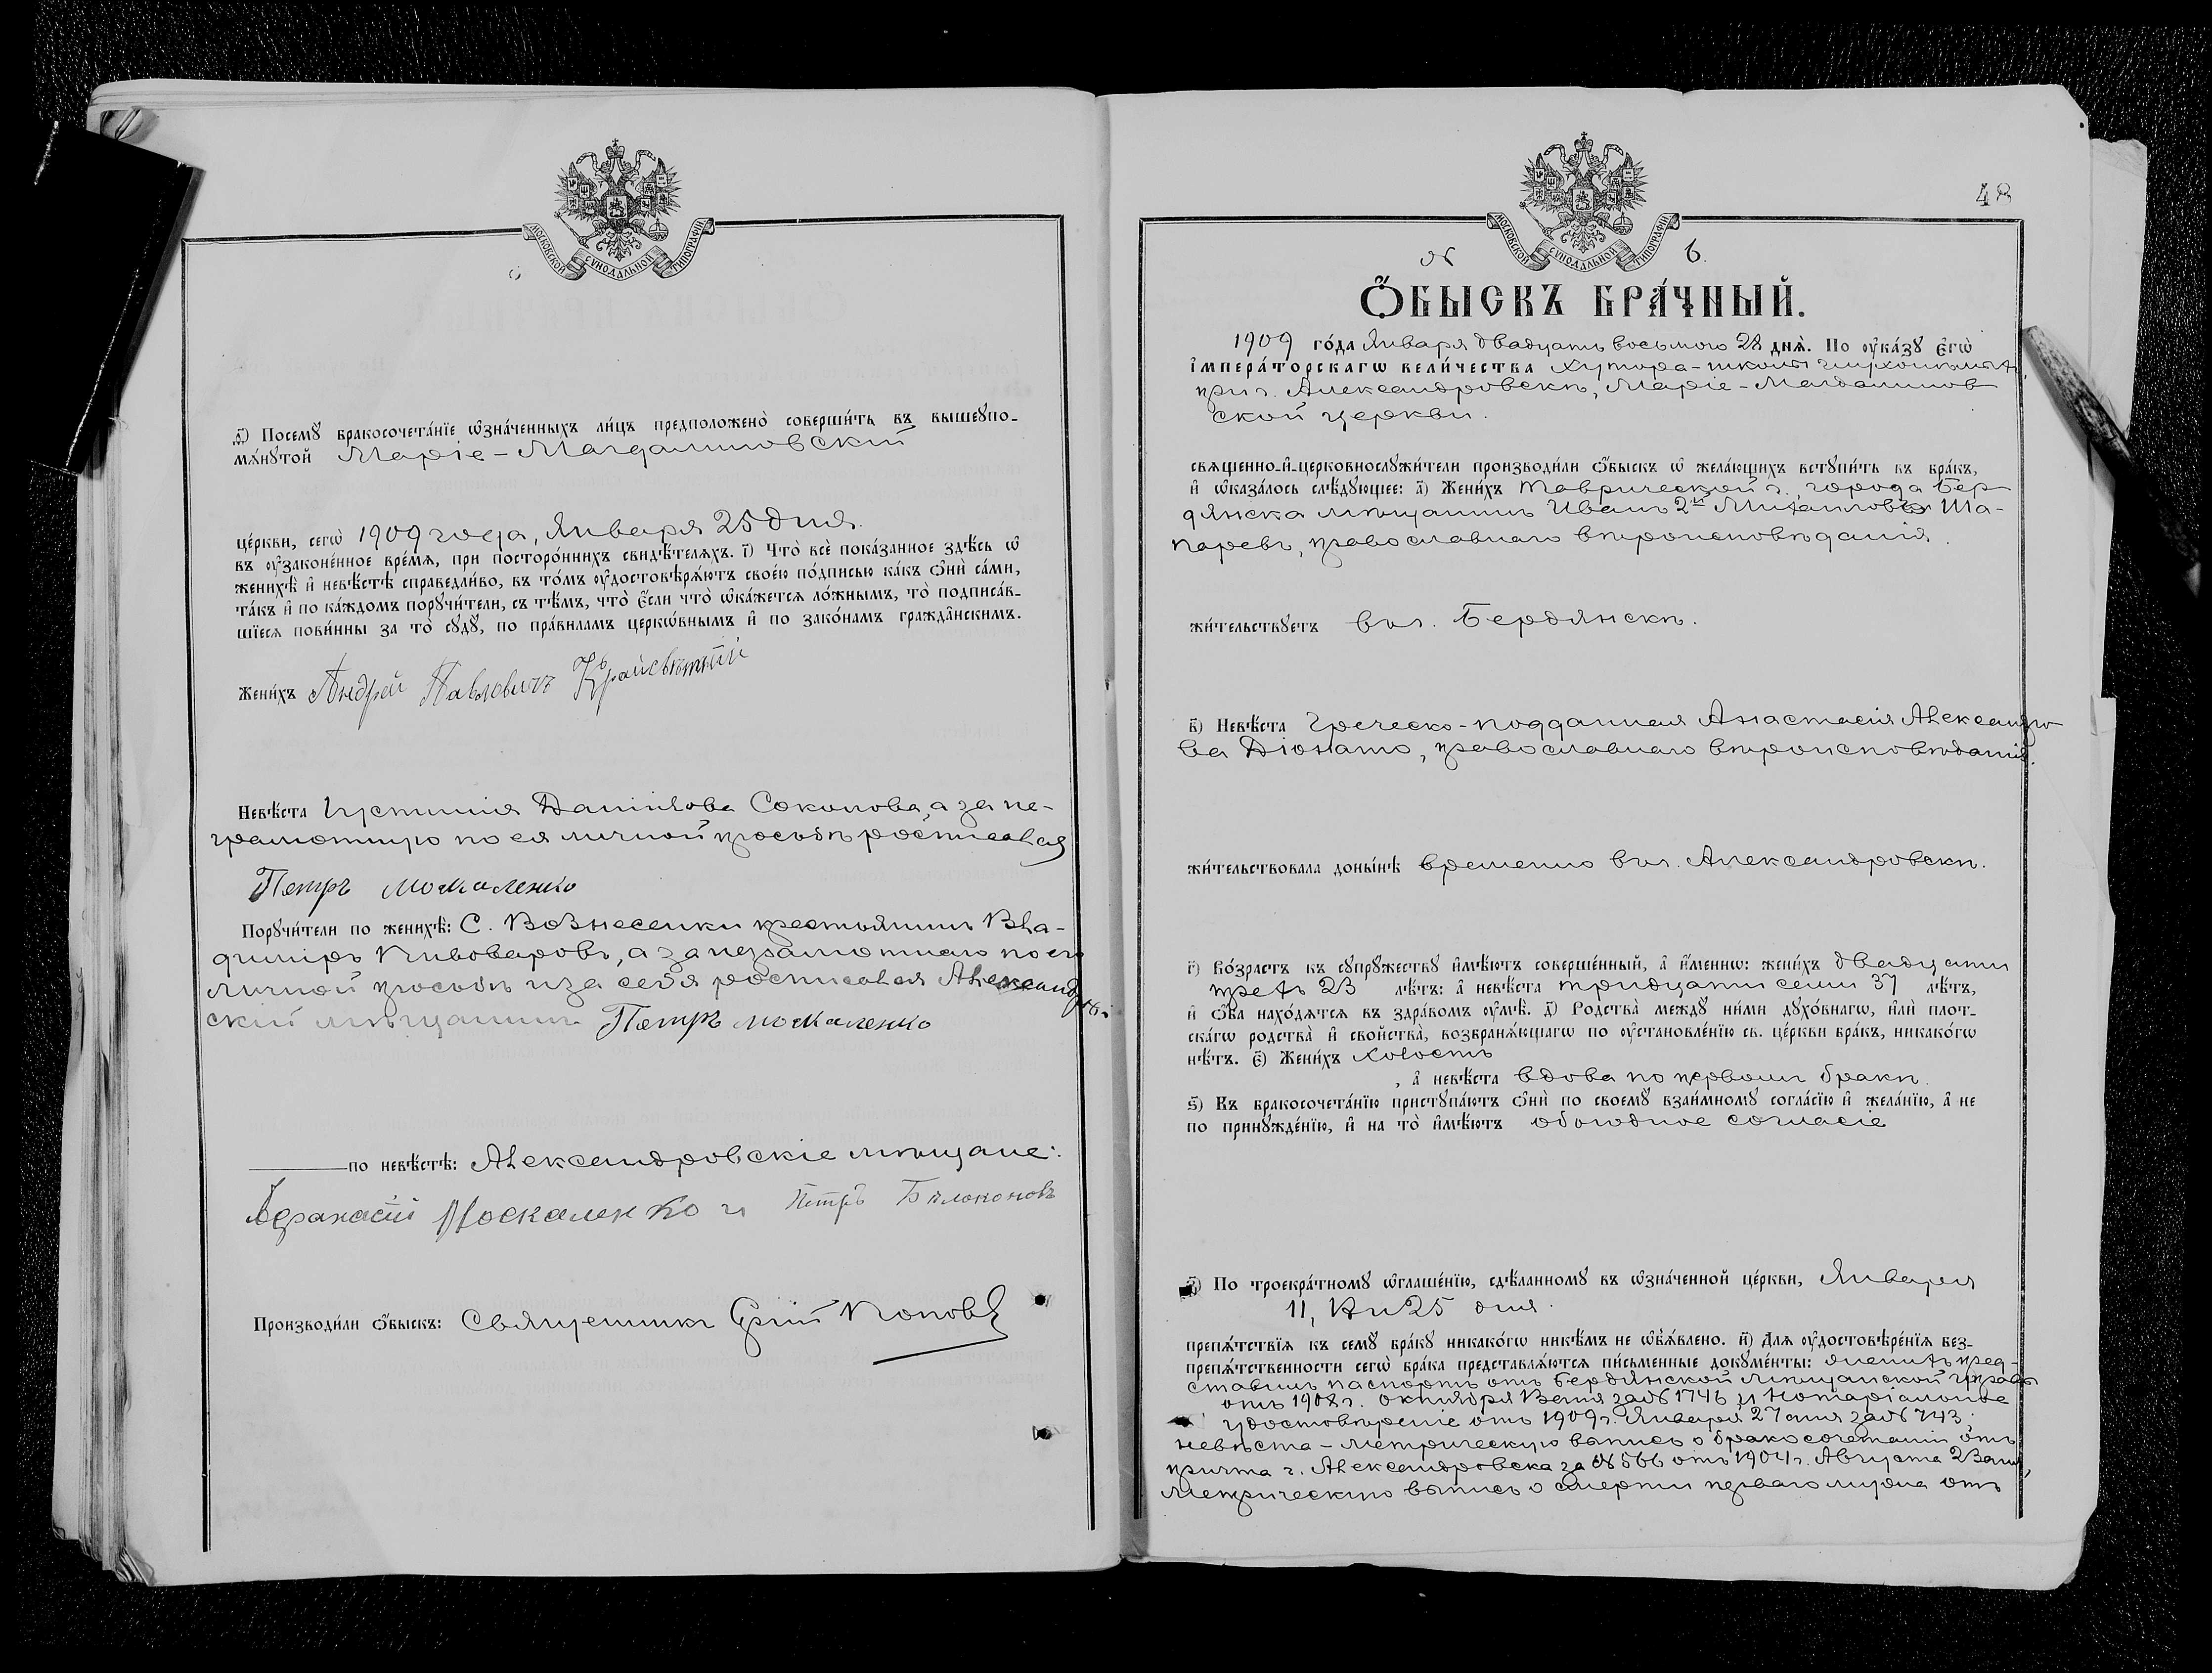 МОСКОВСКОЙ СѴНОДАЛЬНОЙ ТИПОГРАФІИ.
ѳ҃) Посемꙋ̀ бракосочета́нїе ѡ҆зна́ченныхъ ли́цъ предположено̀ соверши́ть въ вышеꙋпо-
мѧ́нꙋтой Маріе-Магдалиновской
це́ркви, сегѡ̀ 1909 года, Января 25 дня.
въ ᲂу҆законе́нное вре́мѧ, при посторо́ннихъ свидѣ́телѧхъ. і҃) Что̀ всѐ пока́занное здѣ́сь ѡ҆
женихѣ̀ и҆ невѣ́стѣ справедли́во, въ то́мъ ᲂу҆достовѣрѧ́ютъ свое́ю по́дписью ка́къ ѻ҆нѝ са́ми,
та́къ и҆ по ка́ждомъ порꙋчи́тели, съ тѣ́мъ, что̀ є҆́сли что̀ ѡ҆ка́жетсѧ ло́жнымъ, то̀ подписа́в-
шїесѧ пови́нны за то̀ сꙋдꙋ̀, по пра́виламъ церко́внымъ и҆ по зако́намъ гражда́нскимъ.
Жени́хъ Андрей Павловичъ Крайсвѣтній
Невѣ́ста Іустинія Даніилова Соколова, а за не-
грамотную по ея личной просьбѣ росписался
Петръ Москаленко
Порꙋчи́тели по женихѣ̀: С. Вознесенки крестьянинъ Вла-
димiръ Пивоваровъ, а за неграмотнаго по его
личной просьбѣ и за себя росписался Александров-
скій мѣщанинъ Петръ Москаленко
по невѣ́стѣ: Александровскіе мѣщане:
Афанасій Москаленко и Петръ Бѣлоконовъ
Производи́ли ѻ҆́быскъ: Священникъ Попов
48
МОСКОВСКОЙ СѴНОДАЛЬНОЙ ТИПОГРАФІИ.
№ 6.
Ѻ҆́БЫСКЪ БРА́ЧНЫЙ.
1909 го́да Января двадцать восьмого 28 днѧ̀. По ᲂу҆ка́зꙋ є҆гѡ̀
і҆мпера́торскагѡ вели́чества Хутора-школы глухонѣмыхъ,
при г. Александровскѣ, Маріе-Магдалинов-
ской церкви.
свѧще́нно-и҆-церковнослꙋжи́тели производи́ли ѻ҆́быскъ ѡ҆ жела́ющихъ встꙋпи́ть въ бра́къ,
и҆ ѡ҆каза́лось слѣ́дꙋющее: а҃) Жени́хъ Таврической г., города Бер-
дянска мѣщанинъ Иванъ 2й Михайловъ Ша-
паревъ, православнаго вѣроисповѣданія.
жи́тельствꙋетъ въ г. Бердянскѣ.
в҃) Невѣ́ста Греческо-подданная Анастасія Александро-
ва Діонато, православнаго вѣроисповѣданія.
жи́тельствовала доны́нѣ временно въ г. Александровскѣ.
г҃) Во́зрастъ къ сꙋпрꙋ́жествꙋ и҆мѣ́ютъ соверше́нный, а҆ и҆́менно: жени́хъ двадцати
трехъ 23 лѣ́тъ: а҆ невѣ́ста тридцати семи 37 лѣ́тъ,
и҆ ѻ҆́ба нахо́дѧтсѧ въ здра́вомъ ᲂу҆мѣ̀. д҃) Родства̀ междꙋ̀ ни́ми дꙋхо́внагѡ, и҆лѝ плот-
ска́гѡ родства̀ и҆ сво́йства, возбранѧ́ющагѡ по ᲂу҆становле́нїю св. це́ркви бра́къ, никако́гѡ
нѣ́тъ. є҃) Жени́хъ холостъ
, а҆ невѣ́ста вдова по первомъ бракѣ.
ѕ҃) Къ бракосочета́нїю пристꙋпа́ютъ ѻ҆нѝ по своемꙋ̀ взаи́мномꙋ согла́сїю и҆ жела́нїю, а҆ не
по принꙋжде́нїю, и҆ на то̀ и҆мѣ́ютъ обоюдное согласіе
з҃) По троекра́тномꙋ ѡ҆глаше́нїю, сдѣ́ланномꙋ въ ѡ҆зна́ченной це́ркви, Января
11, 18 и 25 дня.
препѧ́тствїѧ къ семꙋ̀ бра́кꙋ никако́гѡ никѣ́мъ не ѡ҆б̾ѧ́влено. и҃) Длѧ ᲂу҆достовѣре́нїѧ без-
препѧ́тственности сегѡ̀ бра́ка представлѧ́ютсѧ пи́сьменные докꙋме́нты: женихъ пред-
ставилъ паспортъ отъ Бердянской мѣщанской Управы
отъ 1908 г. Октября 13 дня за № 1746 и Нотаріальное
удостовѣреніе отъ 1909 г. Января 27 дня за № 743;
невѣста - метрическую выпись о бракосочетаніи отъ
причта г. Александровска за № 566 отъ 1904 г. Августа 23 дня,
метрическую выпись о смерти перваго мужа отъ